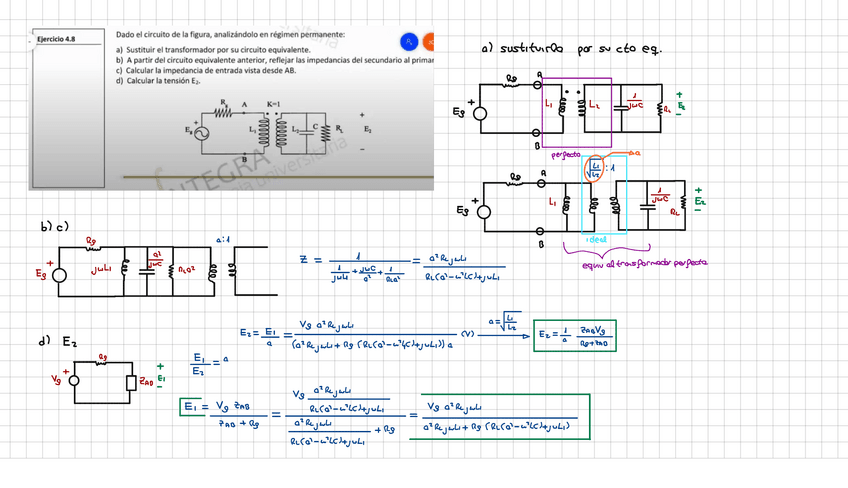 Ejercicio 4.8
Dado el circuito de la figura, analizándolo en régimen permanente:
a) Sustituir el transformador por su circuito equivalente.
b) A partir del circuito equivalente anterior, reflejar las impedancias del secundario al primar
c) Calcular la impedancia de entrada vista desde AB.
d) Calcular la tensión E₂.
Rg A K=1
+
Eg L₁ L₂ C RL E₂
-
B
INTEGRA
Universitaria
a) sustituirlo por su cto eq.
Rg A
+ Eg L₁ L₂ 1/jωC RL + E₂ -
B
perfecto
√(L₁/L₂) : 1 → a
Rg A
+ Eg L₁ 1/jωC RL + E₂ -
B
ideal
equiv al transformador perfecto
b) c)
Rg a:1
+ Eg jωL₁ a²/jωC RLa²
Z = 1/(1/jωL₁ + jωC/a² + 1/RLa²) = a²RLjωL₁/(RL(a²-ω²L₁C)+jωL₁)
d) E₂
Rg
+ Vg ZAB + E₁ -
E₁/E₂ = a
E₂ = E₁/a = Vg a²RLjωL₁/((a²RLjωL₁ + Rg(RL(a²-ω²L₁C)+jωL₁)) a) (V) a=√(L₁/L₂) → E₂ = 1/a ZABVg/(Rg+ZAB)
E₁ = Vg ZAB/(ZAB + Rg) = (Vg a²RLjωL₁/(RL(a²-ω²L₁C)+jωL₁))/(a²RLjωL₁/(RL(a²-ω²L₁C)+jωL₁) + Rg) = Vg a²RLjωL₁/(a²RLjωL₁ + Rg(RL(a²-ω²L₁C)+jωL₁))